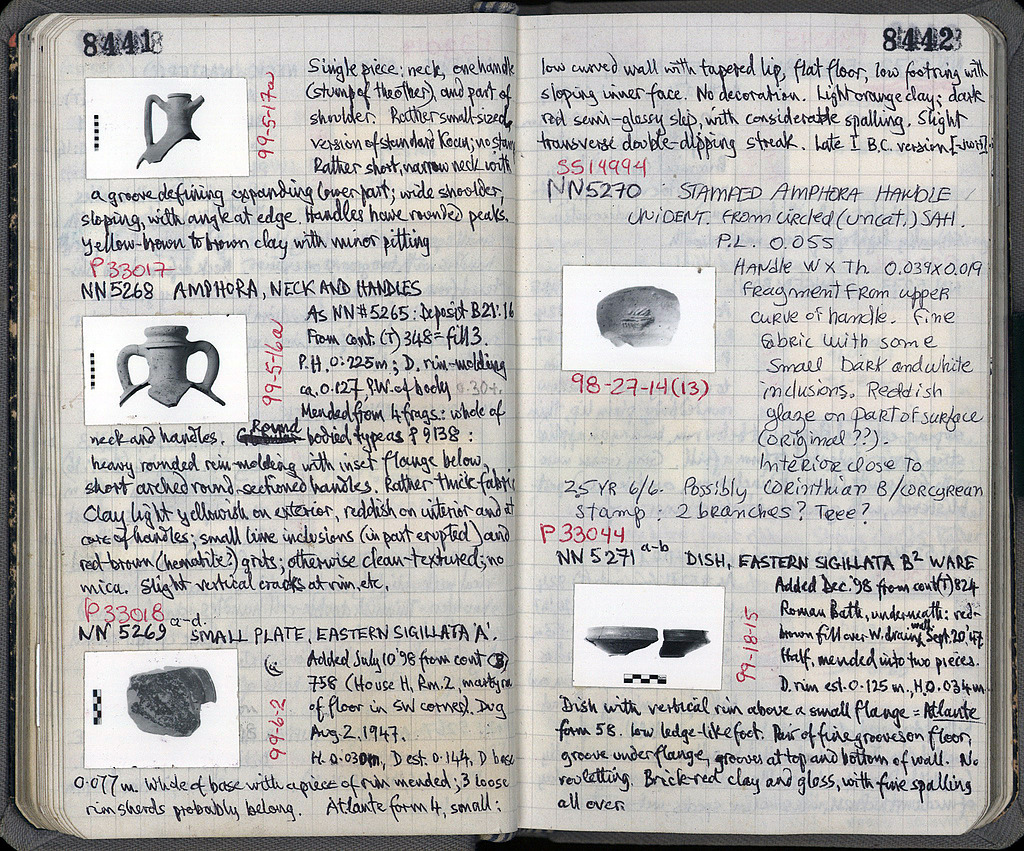 8441
Single piece: neck, one handle
(stump of the other), and part of
shoulder. Rather small-sized
version of standard Koan; no stamp
Rather short, narrow neck with
99-5-17a
a groove defining expanding lower part; wide shoulder,
sloping, with angle at edge. Handles have rounded peaks.
Yellow-brown to brown clay with minor pitting
P 33017
NN 5268 AMPHORA, NECK AND HANDLES
As NN# 5265: Deposit B21:16
From cont. (T) 348 = fill 3.
P.H. 0.225m; D. rim-molding
ca. 0.127, P.W. of body 0.30+.
Mended from 4 frags.: whole of
99-5-16a
neck and handles. Round bodied type as P 9138:
heavy rounded rim-molding with inset flange below,
short arched round-sectioned handles. Rather thick fabric
Clay light yellowish on exterior, reddish on interior and at
core of handles; small lime inclusions (in part erupted) and
red-brown (hematite?) grits; otherwise clean-textured; no
mica. Slight vertical cracks at rim, etc.
P 33018
NN 5269 a-d. SMALL PLATE, EASTERN SIGILLATA 'A'.
Added July 10 '98 from cont (B)
758 (House H, Rm. 2,
of floor in SW corner). Dug
Aug. 2, 1947.
H. 0.030m, D est. 0.144, D base
99-6-2
0.077m. Whole of base with a piece of rim mended; 3 loose
rim sherds probably belong. Atlante form 4, small:
8442
low curved wall with tapered lip, flat floor, low footring with
sloping inner face. No decoration. Light orange clay; dark
red semi-glossy slip, with considerable spalling. Slight
transverse double-dipping streak. Late I B.C. version
SS 14994
NN5270 STAMPED AMPHORA HANDLE
UNIDENT. FROM CIRCLED (UNCAT.) SAH.
P.L. 0.055
HANDLE W X TH 0.039X0.019
Fragment from upper
curve of handle. Fine
fabric with some
small dark and white
inclusions. Reddish
glaze on part of surface
(original??).
Interior close to
98-27-14(13)
2.5 YR 6/6. Possibly Corinthian B/Corcyrean
Stamp: 2 branches? Tree?
P 33044
NN 5271 a-b DISH, EASTERN SIGILLATA B² WARE
Added Dec. '98 from cont (T) 824
Roman Bath, underneath: red-
brown fill over W. drain, Sept. 20 '47
Half, mended into two pieces.
D. rim est. 0.125 m., H. 0.034m
99-18-15
Dish with vertical rim above a small flange = Atlante
form 58. Low ledge-like foot. Pair of fine grooves on floor,
groove under flange, grooves at top and bottom of wall. No
rouletting. Brick-red clay and gloss, with fine spalling
all over